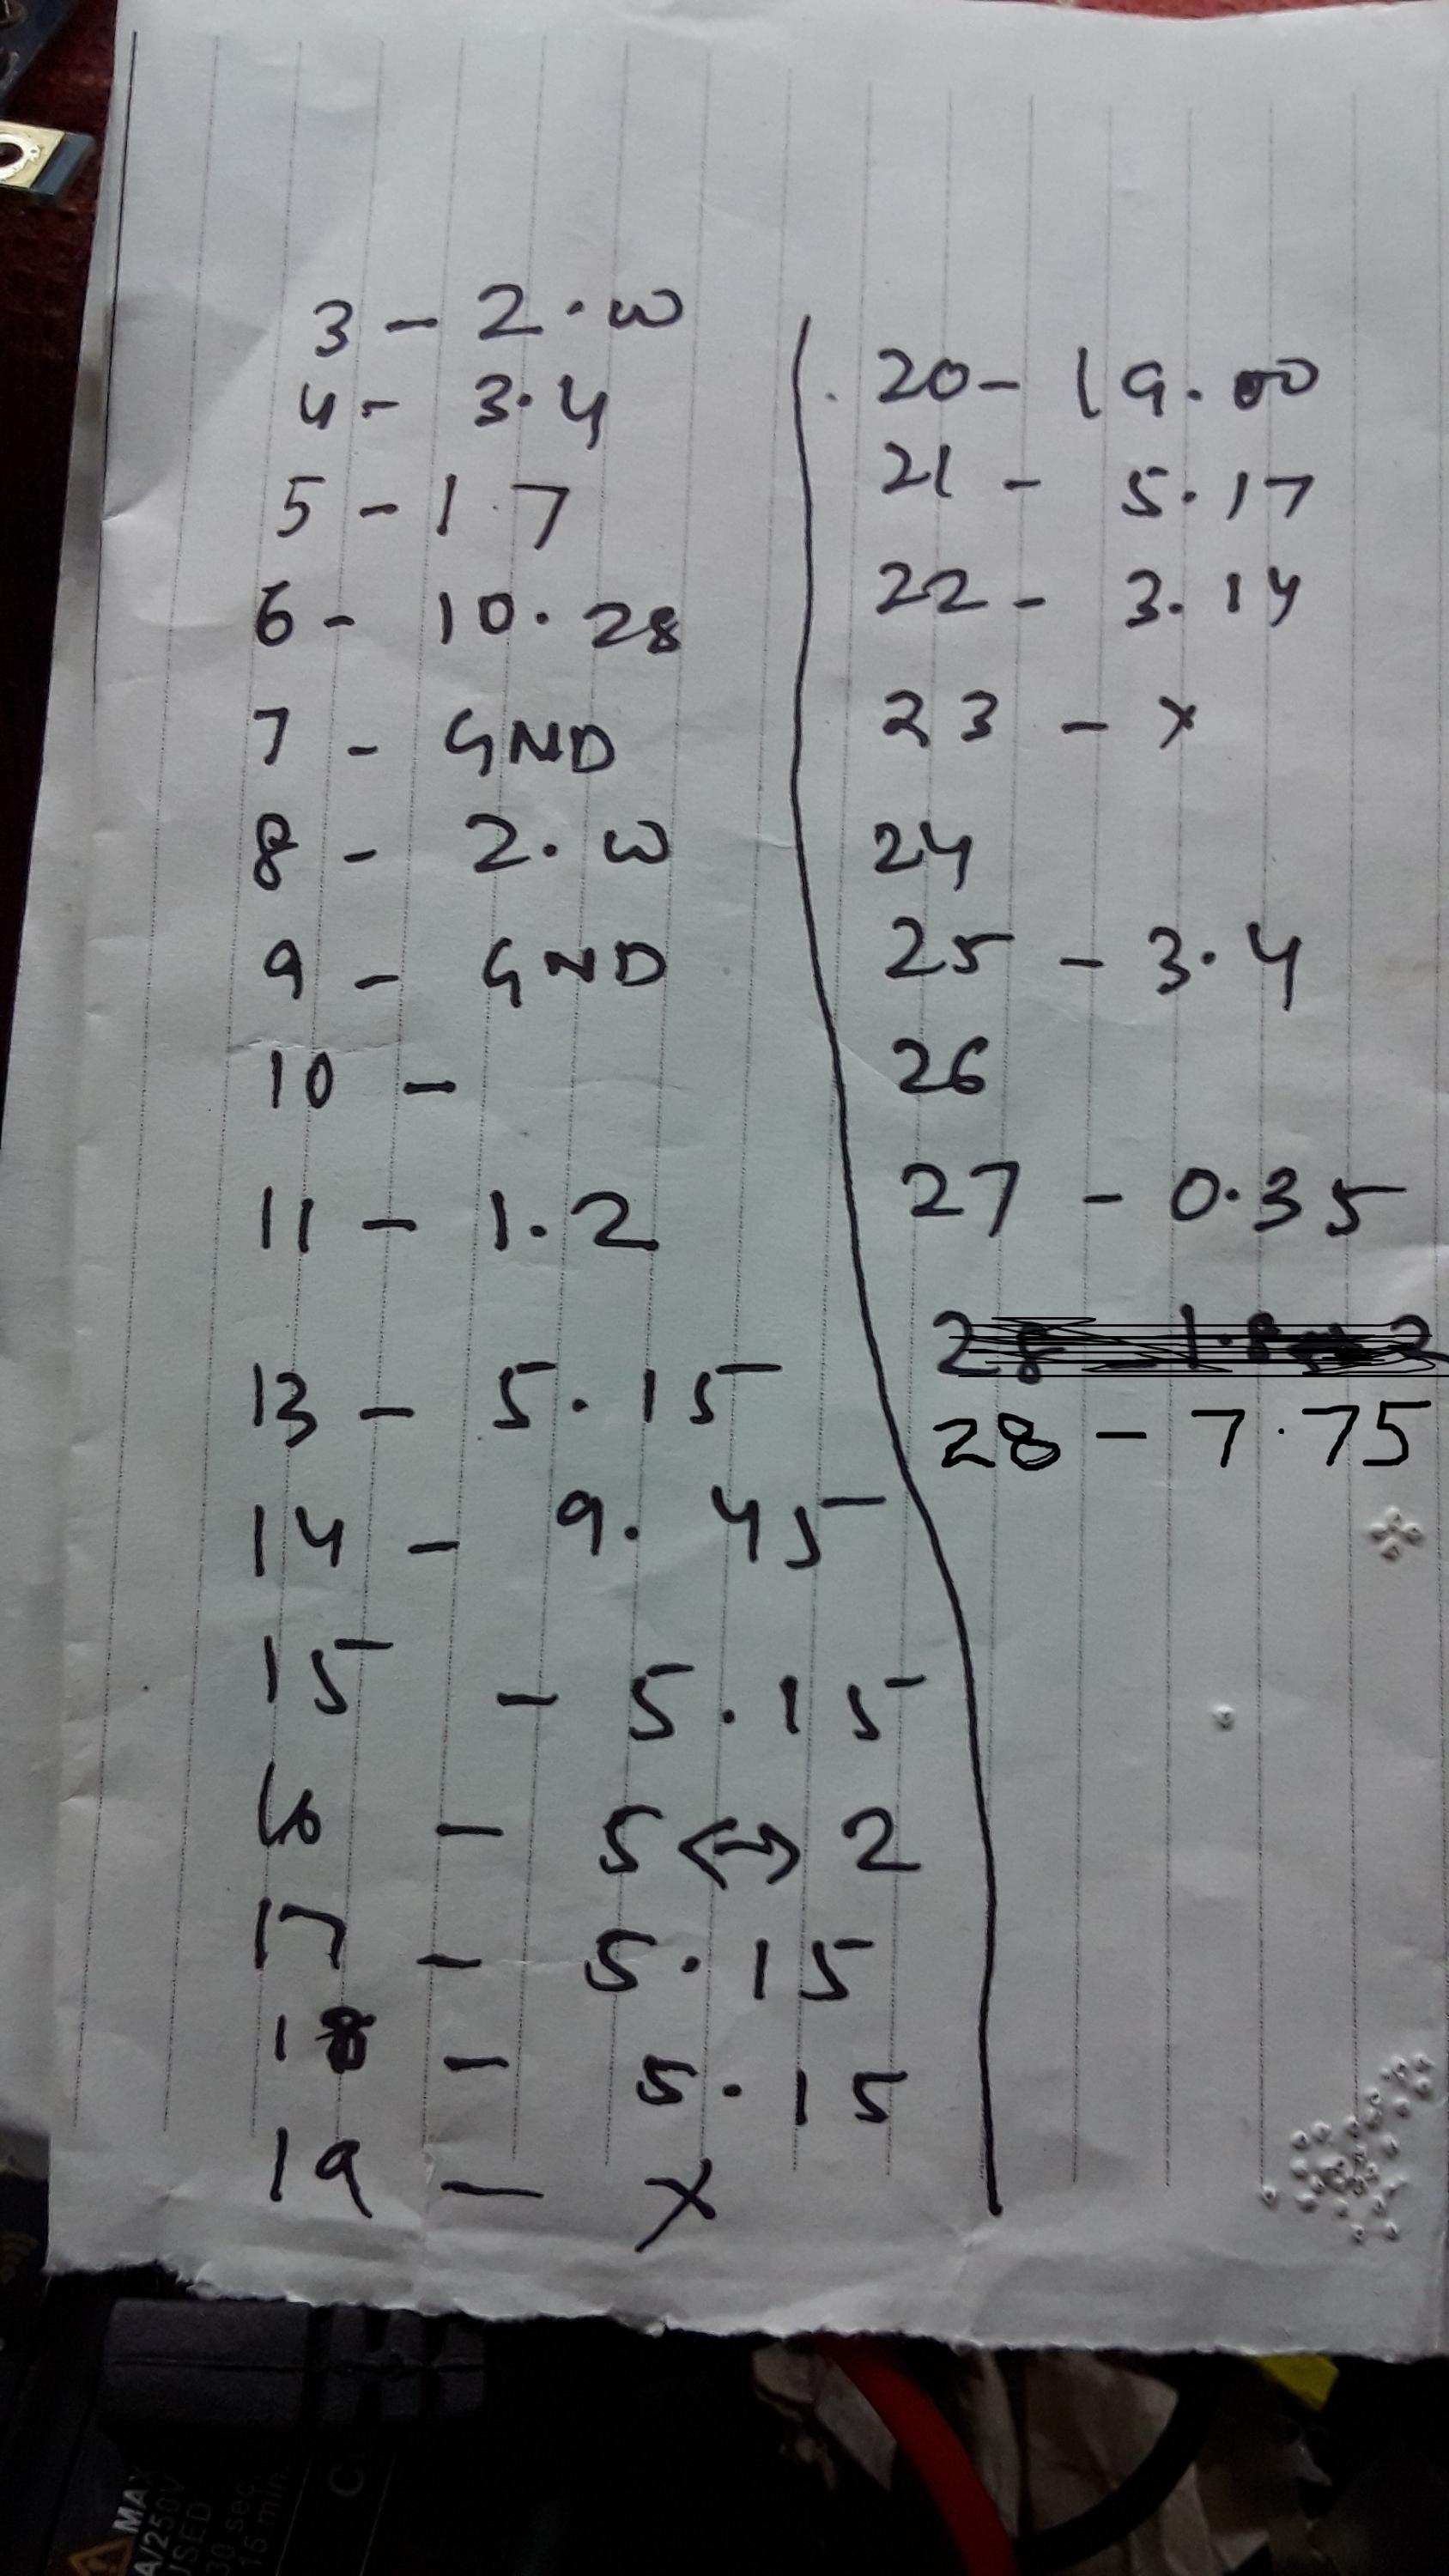 3 - 2.00
4 - 3.4
5 - 1.7
6 - 10.28
7 - GND
8 - 2.00
9 - GND
10 -
11 - 1.2
13 - 5.15
14 - 9.45
15 - 5.15
16 - 5 <-> 2
17 - 5.15
18 - 5.15
19 - x
20 - 19.00
21 - 5.17
22 - 3.14
23 - x
24
25 - 3.4
26
27 - 0.35
28 - 7.75
MAX
A/250V
USED
30 sec
15 min